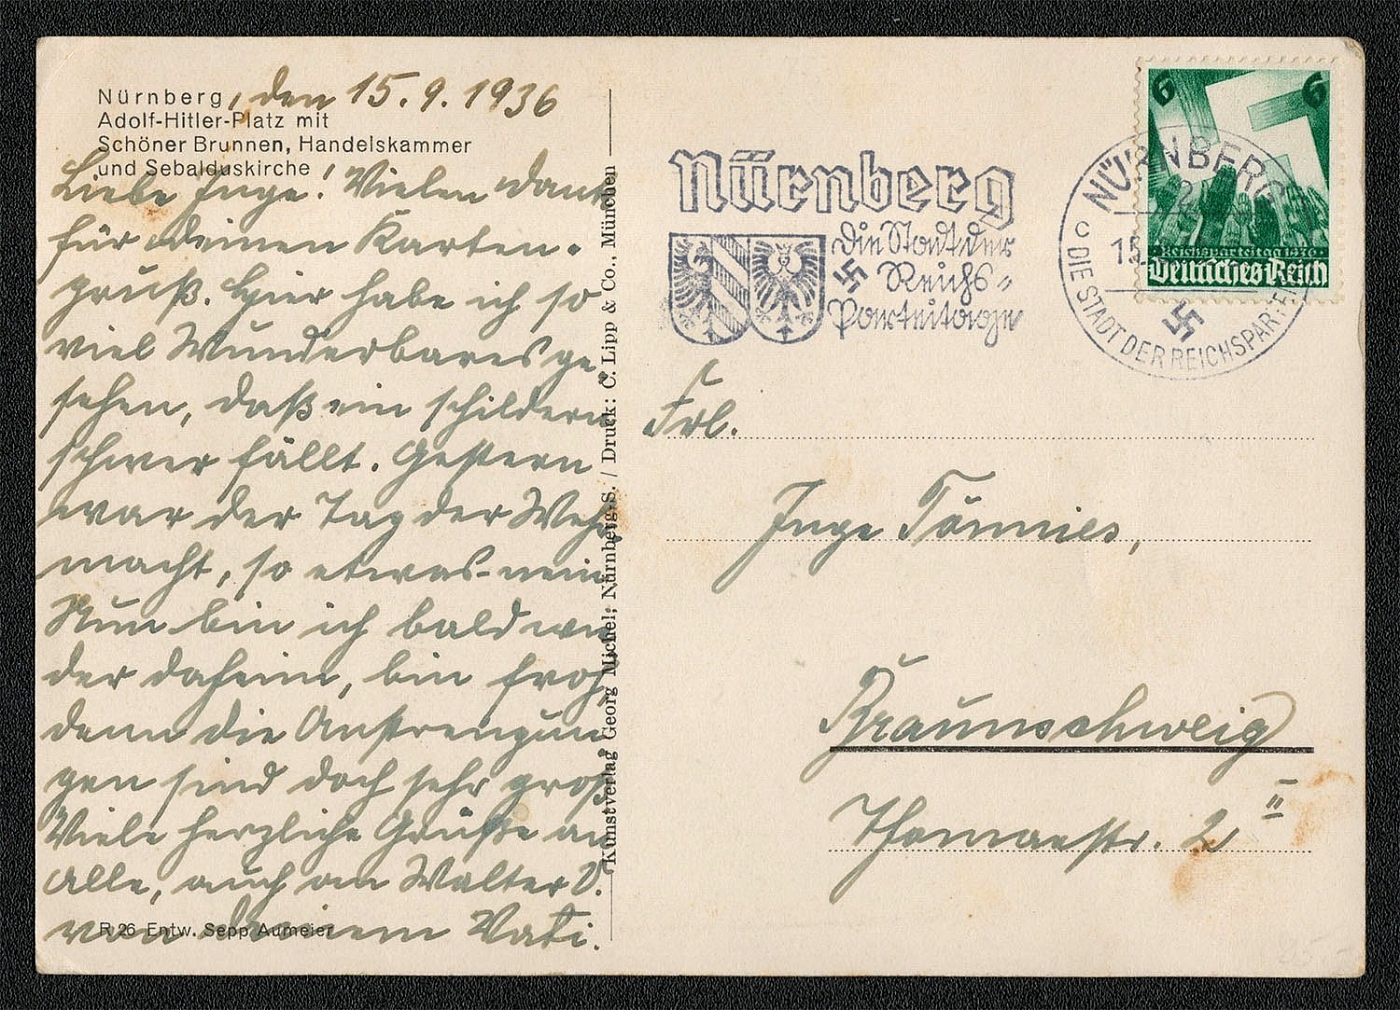 Nürnberg, den 15.9.1936
Adolf-Hitler-Platz mit
Schöner Brunnen, Handelskammer
und Sebalduskirche
Liebe Inge! Vielen Dank
für Deinen Karten-
gruß. Hier habe ich so
viel Wunderbares ge-
sehen, daß ein schildern
schwer fällt. Gestern
war der Tag der Wehr
macht, so etwas-nein
Nun bin ich bald wie
der daheim, bin froh,
denn die Anstrengun
gen sind doch sehr groß
Viele herzliche Grüße an
Alle, auch an Walter D.
von Deinem Vati.
R 26 Entw. Sepp Aumeier
Kunstverlag Georg Michel, Nürnberg-S. / Druck: C. Lipp & Co., München
Nürnberg
Die Stadt der
Reichs-
Parteitage
NÜRNBERG
2
15
c
DIE STADT DER REICHSPARTEI
6 6
Reichsparteitag 1936
Deutsches Reich
Frl.
Inge Tönnies,
Braunschweig
Thomaestr. 2 II
25.-